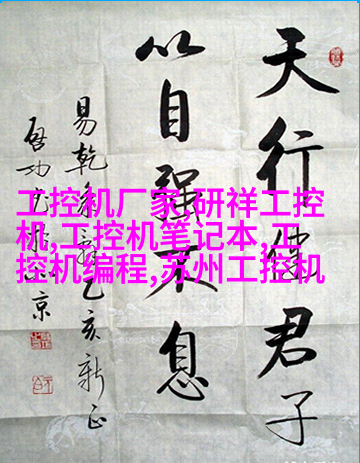 天行健君子
以自強不息
易乾象 乙亥新正
启功 京
工控机厂家,研祥工控
机,工控机笔记本,工
控机编程,苏州工控机